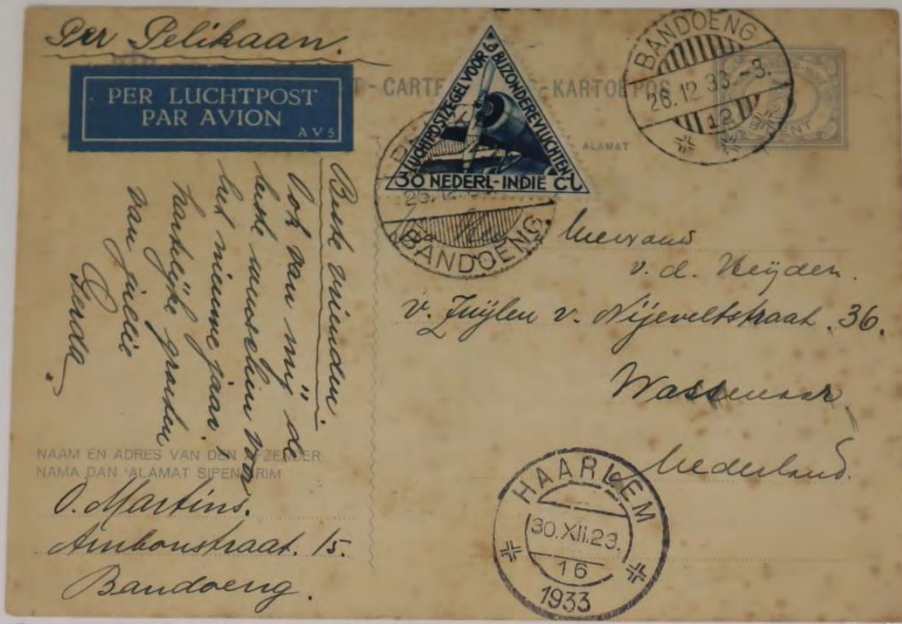 Per Pelikaan.
PER LUCHTPOST
PAR AVION
AV5
- CARTE
-KARTOEPOS
ALAMAT
LUCHTPOSTZEGEL VOOR
BIJZONDERE VLUCHTEN
30 NEDERL-INDIE CT
BANDOENG
26.12.33.-3.
12
BANDOENG
CENT
Beste vrienden.
Ook van mij de
beste wenschen voor
het nieuwe jaar.
hartelijke groeten
van jullie
Gerda.
v. d. Heyden.
v. Zuylen v. Nijeveltstraat. 36.
Wassenaar
Nederland.
NAAM EN ADRES VAN DEN AFZENDER
NAMA DAN 'ALAMAT SIPENGIRIM
O. Martins.
Ambonstraat. 15.
Bandoeng.
HAARLEM
30.XII.23.
16
1933